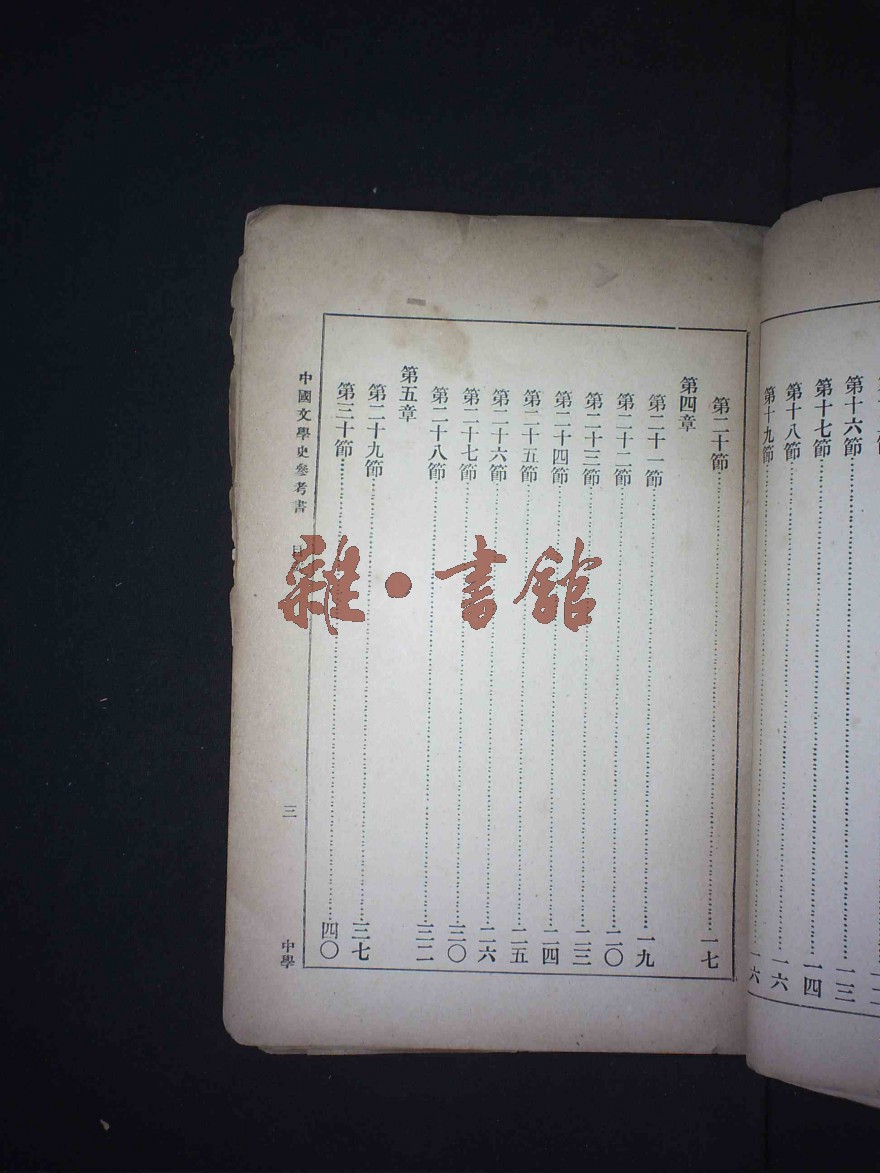 第十六節……一三
第十七節……一四
第十八節……一六
第十九節……一六
第二十節……一七
第四章
第二十一節……一九
第二十二節……二〇
第二十三節……二三
第二十四節……二四
第二十五節……二五
第二十六節……二六
第二十七節……三〇
第二十八節……三二
第五章
第二十九節……三七
第三十節……四〇
中國文學史參考書 三 中學
雜·書館